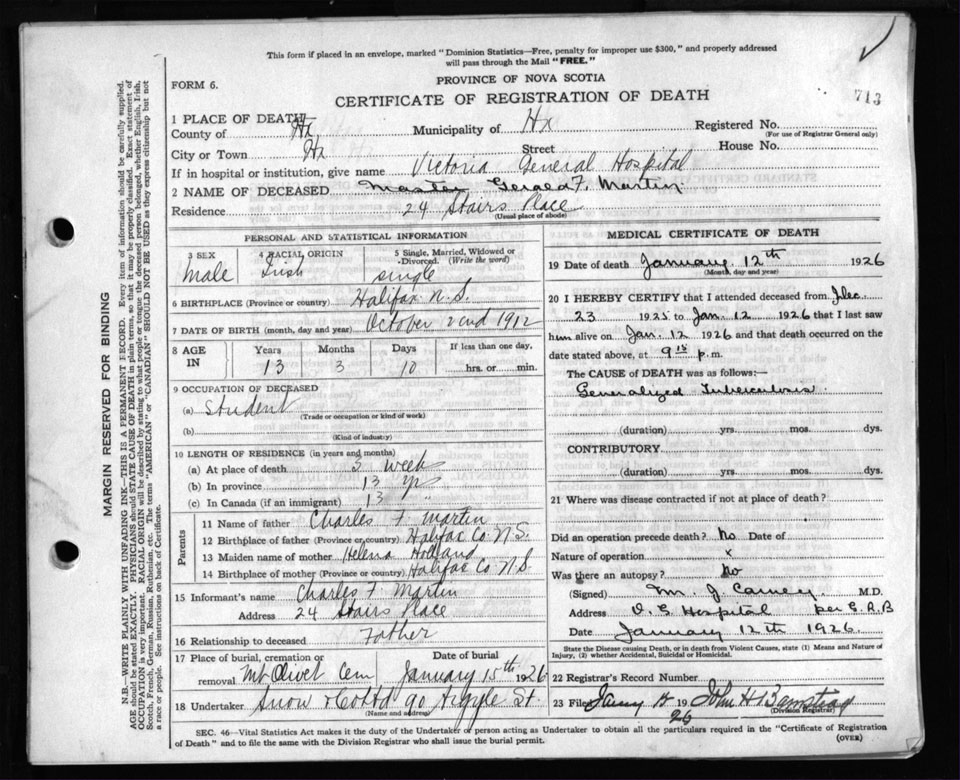 This form if placed in an envelope, marked "Dominion Statistics—Free, penalty for improper use $300," and properly addressed
will pass through the Mail "FREE."
FORM 6.
PROVINCE OF NOVA SCOTIA
CERTIFICATE OF REGISTRATION OF DEATH
713
1 PLACE OF DEATH
County of Hx Municipality of Hx Registered No.
(For use of Registrar General only)
City or Town Hx Street House No.
If in hospital or institution, give name Victoria General Hospital
2 NAME OF DECEASED Master Gerald F. Martin
Residence 24 Stairs Place
(Usual place of abode)
PERSONAL AND STATISTICAL INFORMATION
3 SEX
Male
4 RACIAL ORIGIN
Irish
5 Single, Married, Widowed or
Divorced. (Write the word)
single
6 BIRTHPLACE (Province or country) Halifax N.S.
7 DATE OF BIRTH (month, day and year) October 22nd 1912
8 AGE IN
Years Months Days If less than one day,
13 3 10 hrs. or min.
9 OCCUPATION OF DECEASED
(a) Student
(Trade or occupation or kind of work)
(b)
(Kind of industry)
10 LENGTH OF RESIDENCE (in years and months)
(a) At place of death 3 weeks
(b) In province 13 yrs
(c) In Canada (if an immigrant) 13 "
Parents
11 Name of father Charles F. Martin
12 Birthplace of father (Province or country) Halifax Co. N.S.
13 Maiden name of mother Helena Holland
14 Birthplace of mother (Province or country) Halifax Co N.S.
15 Informant's name Charles F. Martin
Address 24 Stairs Place
16 Relationship to deceased Father
17 Place of burial, cremation or Date of burial
removal Mt Olivet Cem January 15th 1926
18 Undertaker Snow & Co Ltd 90 Argyle St.
(Name and address)
MEDICAL CERTIFICATE OF DEATH
19 Date of death January 12th 1926
(Month, day and year)
20 I HEREBY CERTIFY that I attended deceased from Dec.
23 1925 to Jan. 12 1926 that I last saw
him alive on Jan. 12 1926 and that death occurred on the
date stated above, at 9 15 p.m.
The CAUSE OF DEATH was as follows:—
Generalized Tuberculosis
(duration) yrs. mos. dys.
CONTRIBUTORY
(duration) yrs. mos. dys.
21 Where was disease contracted if not at place of death?
Did an operation precede death? No Date of
Nature of operation x
Was there an autopsy? No
(Signed) M. J. Carney M.D.
Address V. G. Hospital per G.A.B
Date January 12th 1926.
State the Disease causing Death, or in death from Violent Causes, state (1) Means and Nature of
Injury, (2) whether Accidental, Suicidal or Homicidal.
22 Registrar's Record Number
23 Filed 19 26 John H Barnstead
(Division Registrar)
SEC. 46—Vital Statistics Act makes it the duty of the Undertaker or person acting as Undertaker to obtain all the particulars required in the "Certificate of Registration
of Death" and to file the same with the Division Registrar who shall issue the burial permit.
(OVER)
MARGIN RESERVED FOR BINDING
N.B.—WRITE PLAINLY WITH UNFADING INK—THIS IS A PERMANENT RECORD. Every item of information should be carefully supplied.
AGE should be stated EXACTLY. PHYSICIANS should STATE CAUSE OF DEATH in plain terms, so that it may be properly classified. Exact statement of
OCCUPATION is very important. RACIAL ORIGIN will be described by stating to what people or tongue the deceased person belonged, whether English, Irish,
Scotch, French, German, Russian, Ruthenian, etc. The terms "AMERICAN" or "CANADIAN" SHOULD NOT BE USED as they express citizenship but not
a race or people. See instructions on back of Certificate.